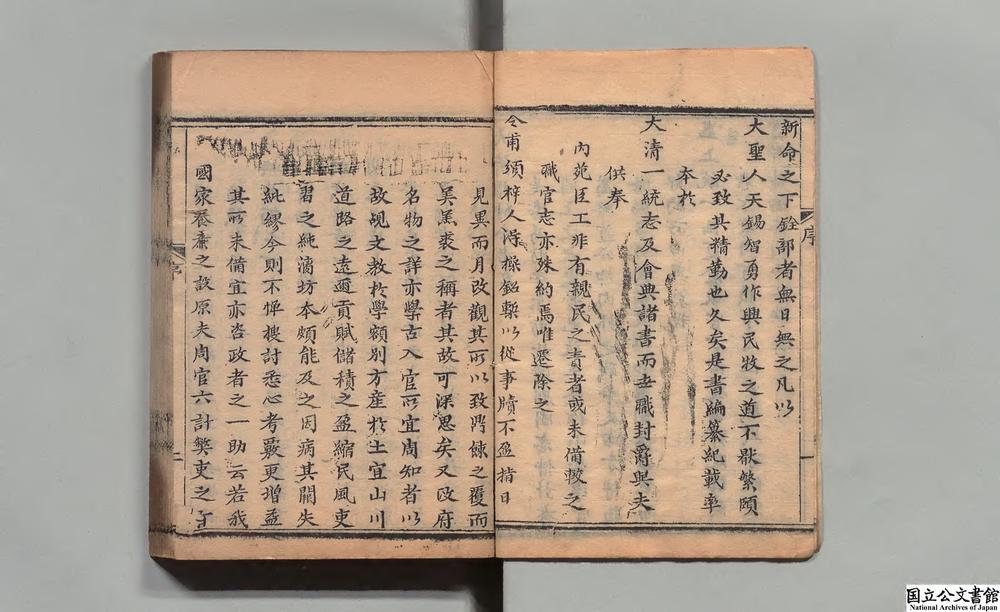 新命之下銓部者無日無之凡以
大聖人天錫智勇作興民牧之道不厭繁頤
必致其精勤也久矣是書編纂紀載率
本於
大清一統志及會典諸書而世職封爵與夫
供奉
內苑臣工非有親民之責者或未備較之
職官志亦殊約焉唯遷除之
令甫頒梓人得操鉛槧以從事牘不盈指日
見異而月改觀其所以致門餗之覆而
美羔裘之稱者其故可深思矣又改府
名物之詳亦學古入官所宜周知者以
故覘文教於學額別方產於土宜山川
道路之遠邇貢賦儲積之盈縮民風吏
習之純漓坊本頗能及之因病其闕失
紕繆今則不憚搜討悉心考覈更增益
其所未備宜亦咨政者之一助云若我
國家養廉之設原夫周官六計弊吏之
序
一
序
二
国立公文書館
National Archives of Japan